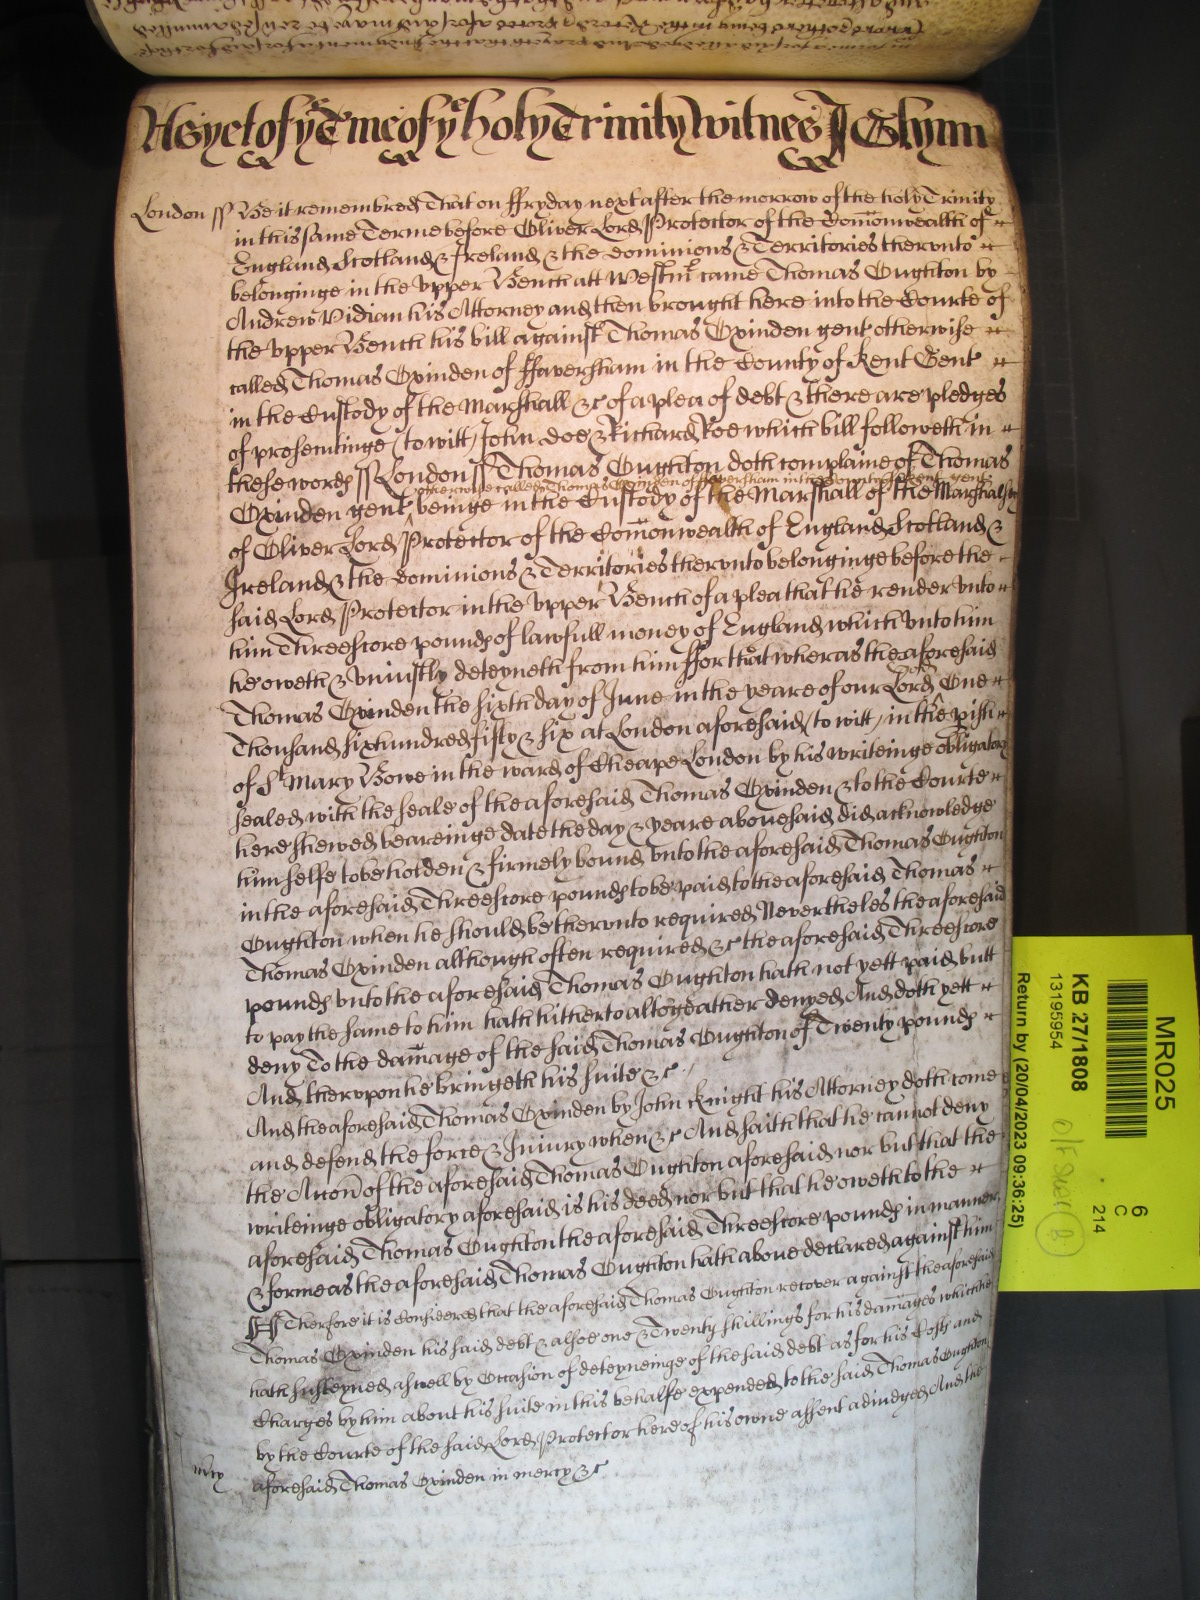 As yet of ye Tme of ye holy Trinity Witnes J Glynn
London ss Be it remembred That on ffryday next after the morrow of the holy Trinity
in this same Terme before Oliver Lord Protector of the Comonwealth of
England Scotland & Ireland & the dominions & Territories therunto
belonginge in the upper Bench att Westmr came Thomas Oughton by
Andrew Vidian his Attorney and then brought here into the Courte of
the upper Bench his bill against Thomas Oxinden gent otherwise
called Thomas Oxinden of ffaversham in the County of Kent Gent
in the Custody of the Marshall &c of a plea of debt & there are pledges
of prosecutinge (to witt) John Doe & Richard Roe which bill followeth in
these words ss London ss Thomas Oughton doth complaine of Thomas
otherwise called Thomas Oxinden of ffaversham in the County of Kent gent
Oxinden gent beinge in the Custody of the Marshall of the Marshalsey
of Oliver Lord Protector of the Comonwealth of England Scotland &
Ireland & the dominions & Territories therunto belonginge before the
said Lord Protector in the upper Bench of a plea that he render unto
him Threescore pounds of lawfull money of England which unto him
he oweth & uniustly deteyneth from him ffor that wheras the aforesaid
Thomas Oxinden the sixth day of June in the yeare of our Lord One
Thousand six hundred fifty & six at London aforesaid (to witt) in the pish
of St Mary Bowe in the ward of Cheape London by his writeinge obligatory
sealed with the seale of the aforesaid Thomas Oxinden & to the Courte
here shewed beareinge date the day & yeare abovesaid did acknowledge
himselfe to be holden & firmely bound unto the aforesaid Thomas Oughton
in the aforesaid Threescore pounds to be paid to the aforesaid Thomas
Oughton when he should be therunto required Nevertheles the aforesaid
Thomas Oxinden although often required &c the aforesaid Threescore
pounds unto the aforesaid Thomas Oughton hath not yett paid butt
to pay the same to him hath hitherto altogeather denyed And doth yett
deny To the damage of the said Thomas Oughton of Twenty pounds
And therupon he bringeth his suite &c
And the aforesaid Thomas Oxinden by John Knight his Attorney doth come
and defend the force & Iniury when &c And saith that he cannot deny
the Accon of the aforesaid Thomas Oughton aforesaid nor but that the
writeinge obligatory aforesaid is his deed nor but that he oweth to the
aforesaid Thomas Oughton the aforesaid Threescore pounds in manner
& forme as the aforesaid Thomas Oughton hath above declared against him
Therfore it is Considered that the aforesaid Thomas Oughton recover against the aforesaid
Thomas Oxinden his said debt & alsoe one & Twenty shillings for his damages which he
hath susteyned aswell by Occasion of deteyneinge of the said debt as for his Costs and
Charges by him about his suite in this behalfe expended to the said Thomas Oughton
by the Courte of the said Lord Protector here of his owne assent adiudged And the
mercy aforesaid Thomas Oxinden in mercy &c
MR025
6
C
214
KB 27/1808
13195954
Return by (20/04/2023 09:36:25)